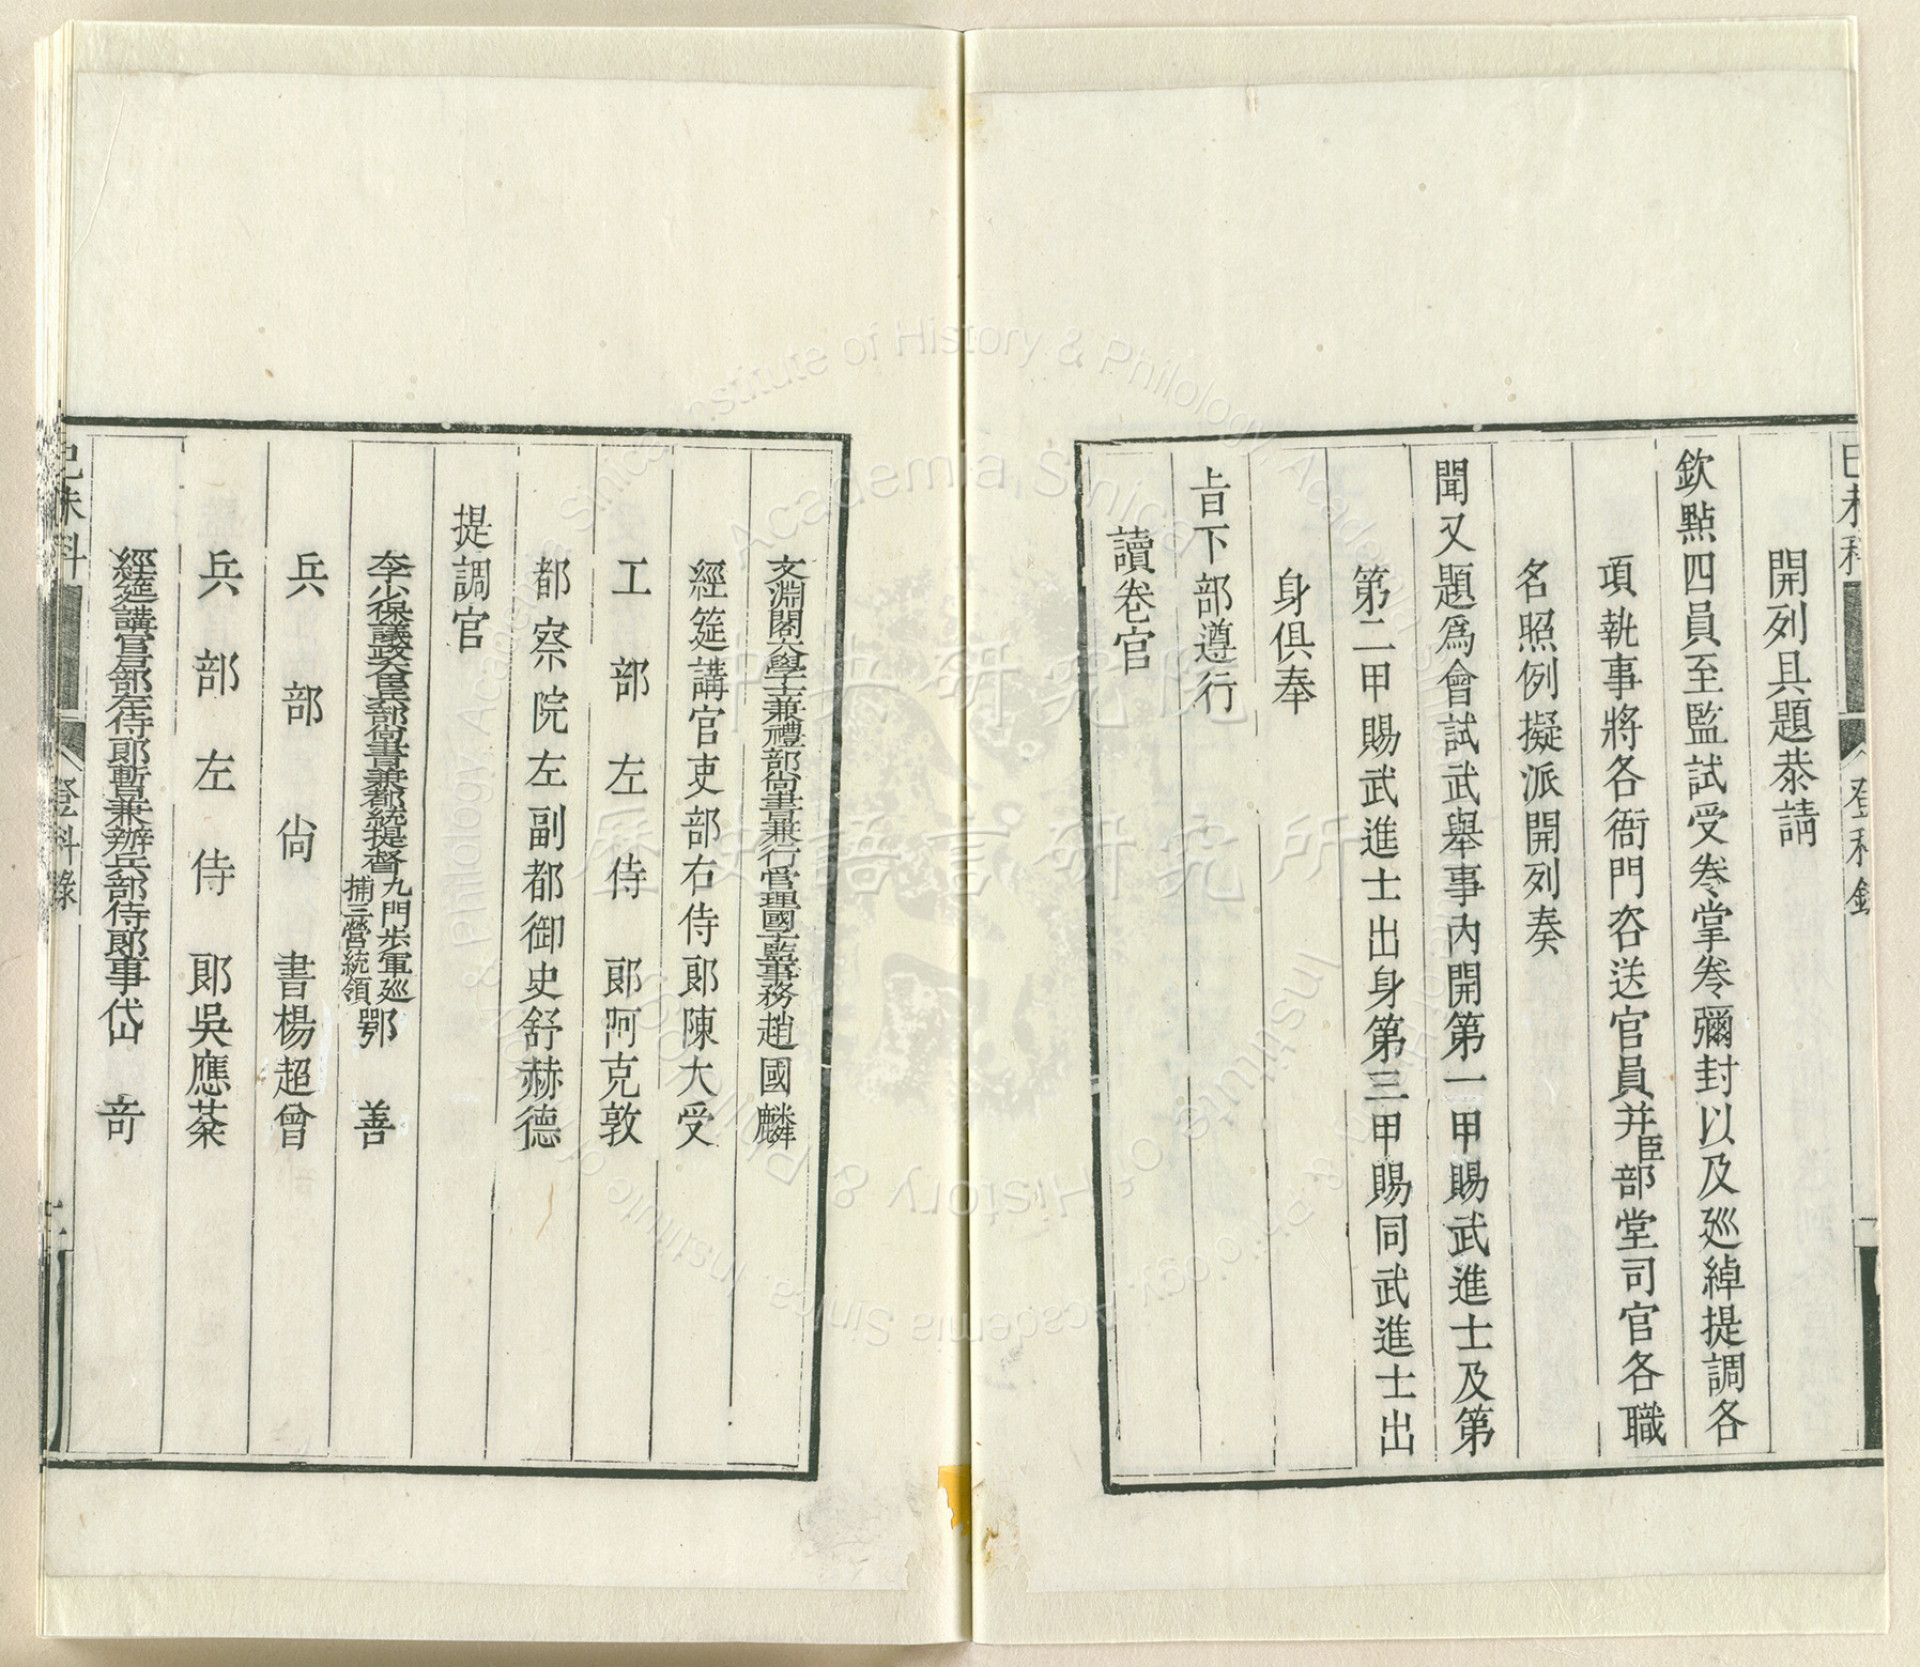 開列具題恭請
欽點四員至監試受卷掌卷彌封以及廵綽提調各
項執事將各衙門咨送官員并臣部堂司官各職
名照例擬派開列奏
聞又題爲會試武舉事內開第一甲賜武進士及第
第二甲賜武進士出身第三甲賜同武進士出
身俱奉
旨下部遵行
讀卷官
文淵閣大學士兼禮部尙書兼行管理國子監事務趙國麟
經筵講官吏部右侍郞陳大受
工部左侍郞阿克敦
都察院左副都御史舒赫德
提調官
太子少保議政大臣兵部尙書兼都統提督九門步軍廵捕三營統領鄂善
兵部尙書楊超曾
兵部左侍郞吳應棻
經筵講官吏部左侍郞暫兼辦兵部侍郞事岱奇
己未科 登科錄
中央研究院
歷史語言研究所
Institute of History & Philology, Academia Sinica